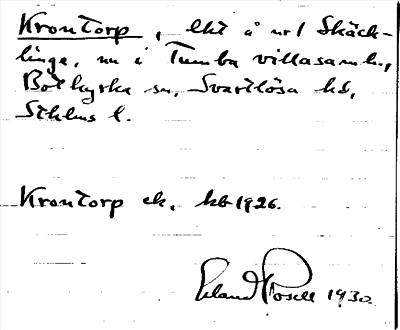 Krontorp, lht å nr 1 Skäck-
linge, nu i Tumba villasamh.,
Botkyrka sn, Svartlösa hd,
Sthlms l.
Krontorp ek. kb 1926.
Erland Rosell 1930